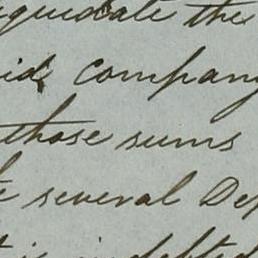 liquidate the
id company
those sums
several De
is indebted